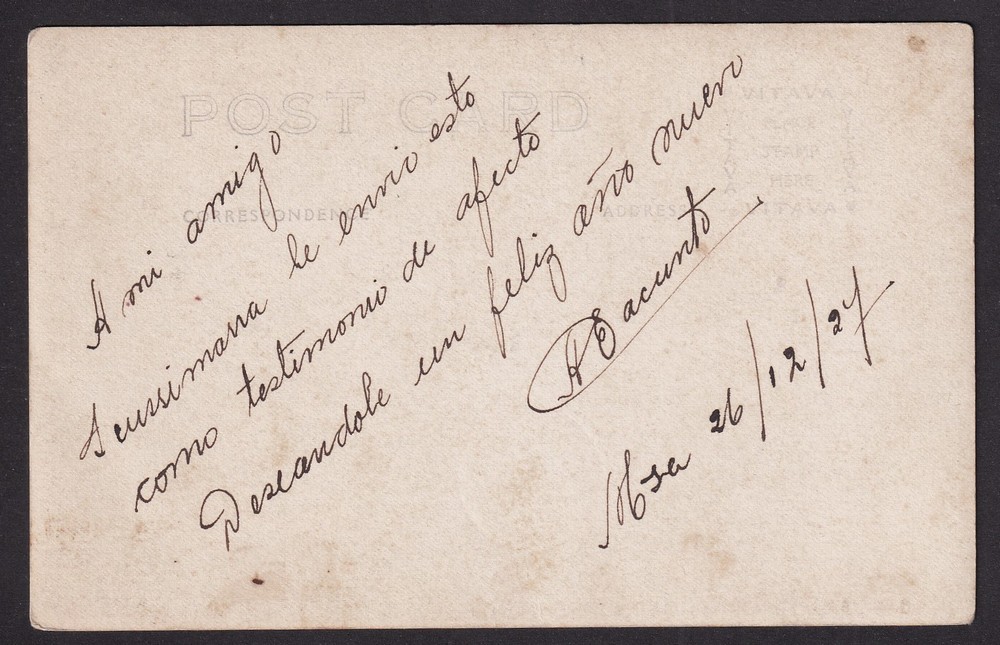 POST CARD
CORRESPONDENCE
ADDRESS
VITAVA
PLACE
STAMP
HERE
VITAVA
A mi amigo
Scussimarra le envio esto
como testimonio de afecto
Deseandole un feliz año nuevo
26/12/27